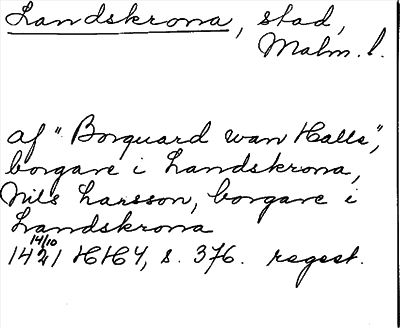 Landskrona, stad,
Malm. l.
af "Borquard van Halle",
borgare i Landskrona,
Nils Larsson, borgare i
Landskrona
14/10
1421 HH4, s. 376. regest.